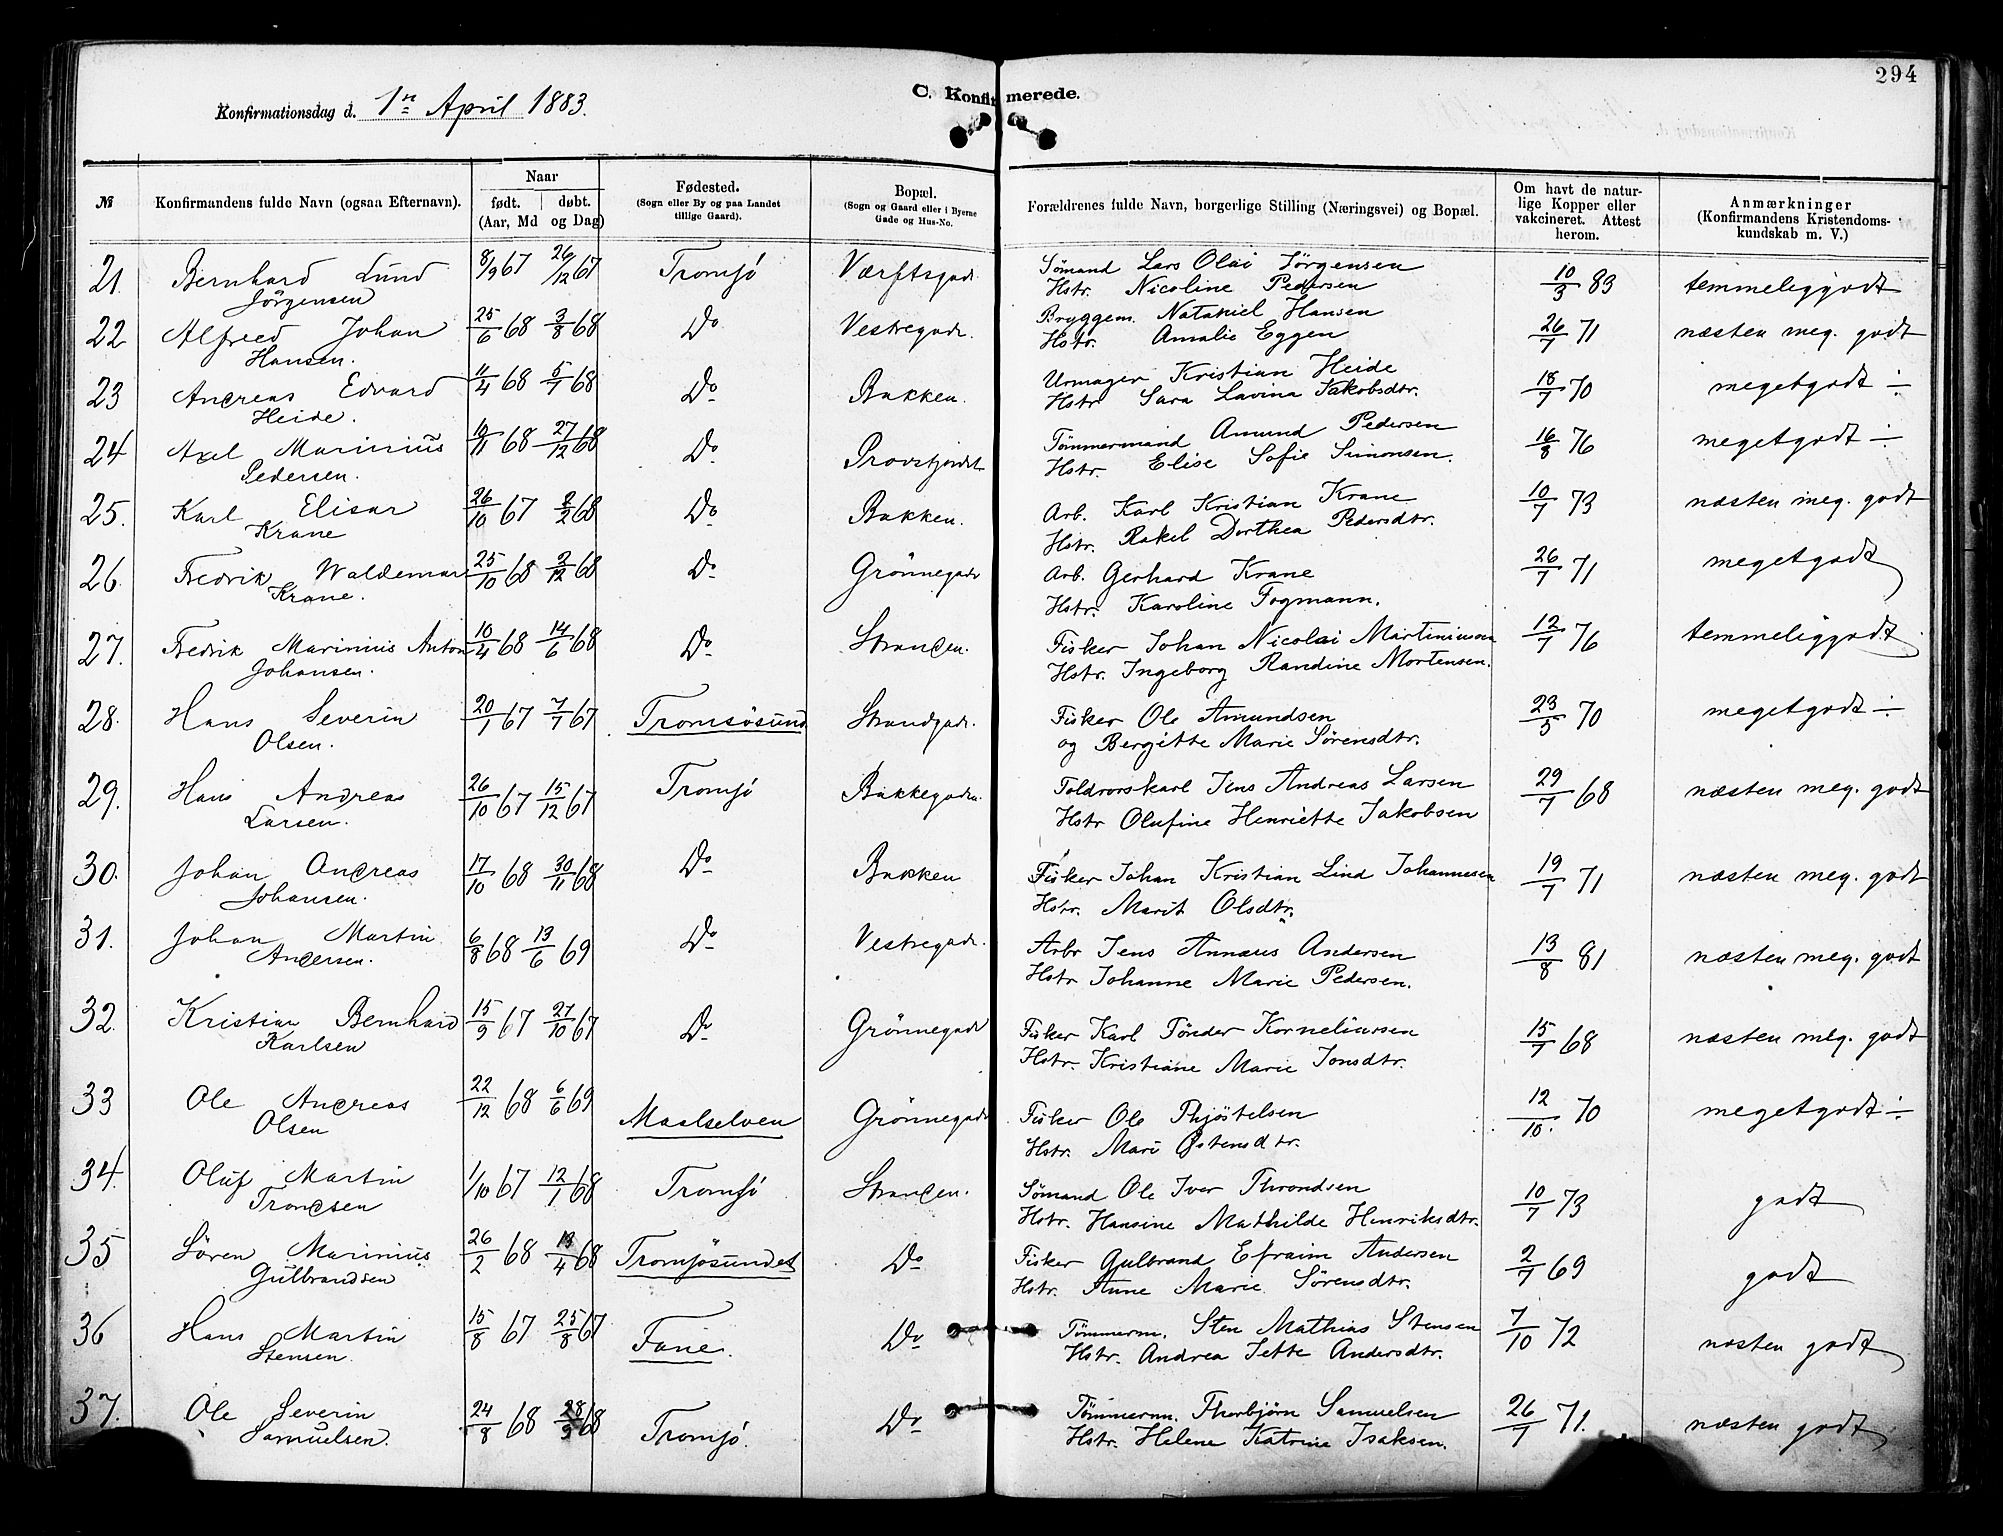 294
Konfirmationsdag d. 1ste April 1883.
C. Konfirmerede.
№
Konfirmandens fulde Navn (ogsaa Efternavn).
Naar
født. døbt.
(Aar, Md og Dag)
Fødested.
(Sogn eller By og paa Landet
tillige Gaard).
Bopæl.
(Sogn og Gaard eller i Byerne
Gade og Hus-No.
Forældrenes fulde Navn, borgerlige Stilling (Næringsvei) og Bopæl.
Om havt de natur-
lige Kopper eller
vakcineret. Attest
herom.
Anmærkninger
(Konfirmandens Kristendoms-
kundskab m. V.)
21. Bernhard Lund 8/9 67 26/12 67 Tromsø Værftsgad. Sømand Lars Olai Jørgensen 10/3 83 temmeliggodt
Jørgensen Hstr. Nicoline Pedersen
22 Alfred Johan 25/6 68 3/8 68 Do Vestregad. Bryggem. Nataniel Hansen 26/7 71 næsten meg. godt
Hansen. Hstr. Amalie Eggen
23 Andreas Edvard 11/4 68 5/7 68 Do Bakken. Urmager Kristian Heide 18/7 70 megetgodt ÷
Heide. Hstr Sara Lavina Jakobsdtr.
24 Axel Marinius 10/11 68 27/12 68 Do Provstjordet Tømmermand Amund Pedersen 16/8 76 megetgodt ÷
Pedersen. Hstr. Elise Sofie Simonsen.
25. Karl Elisar 26/10 67 2/2 68 Do Bakken. Arb. Karl Kristian Krane 10/7 73 næsten meg. godt
Krane Hstr. Rakel Dorthea Pedersdtr.
26. Fredrik Waldemar 25/10 68 2/12 68 Do Grønnegad. Arb. Gerhard Krane 26/7 71 megetgodt
Krane. Hstr. Karoline Fogmann.
27. Fredrik Marinius Anton 10/4 68 14/6 68 Do Stranden. Fisker Johan Nicolai Martiniusen 12/7 76 temmeliggodt
Johansen. Hstr. Ingeborg Randine Mortensen.
28. Hans Severin 20/1 67 7/7 67 Tromsøsund Strandgad. Fisker Ole Amundsen 23/5 70 megetgodt ÷
Olsen. og Bergitte Marie Sørensdtr.
29. Hans Andreas 26/10 67 15/12 67 Tromsø Bakkegaden. Toldrorskarl Jens Andreas Larsen 29/7 68 næsten meg. godt
Larsen. Hstr Olufine Henriette Jakobsen
30. Johan Andreas 17/10 68 30/11 68 Do Bakken Fisker Johan Kristian Lind Johannesen 19/7 71 næsten meg. godt
Johansen. Hstr. Marit Olsdtr.
31. Johan Martin 6/8 68 13/6 69 Do Vestregad. Arbr Jens Annæus Andersen 13/8 81 næsten meg. godt
Andersen. Hstr. Johanne Marie Pedersen.
32. Kristian Bernhard 15/9 67 27/10 67 Do Grønnegad. Fisker Karl Tønder Korneliussen 15/7 68 næsten meg. godt
Karlsen Hstr. Kristiane Marie Jonsdtr.
33 Ole Andreas 22/12 68 6/6 69 Maalselven Grønnegad. Fisker Ole Thjøstelsen 12/10. 70 megetgodt ÷
Olsen Hstr. Mari Østensdtr.
34. Oluf Martin 1/10 67 12/1 68 Tromsø Stranden. Sømand Ole Iver Throndsen 10/7 73 godt
Trondsen Hstr. Hansine Mathilde Henriksdtr.
35 Søren Marinius 26/2 68 13/4 68 Tromsøsundet Do Fisker Gulbrand Efraim Andersen 2/7 69 godt
Gulbrandsen Hstr. Anne Marie Sørensdtr.
36 Hans Martin 15/8 67 25/8 67 Do Tømmerm. Sten Mathias Stensen 7/10 72 næsten godt
Stensen. Hstr. Andrea Jette Andersdtr.
37. Ole Severin 24/8 68 28/9 68 Tromsø. Do Tømmerm. Thorbjørn Samuelsen 26/7 71. næsten godt
Samuelsen. Hstr. Helene Katrine Isaksen.